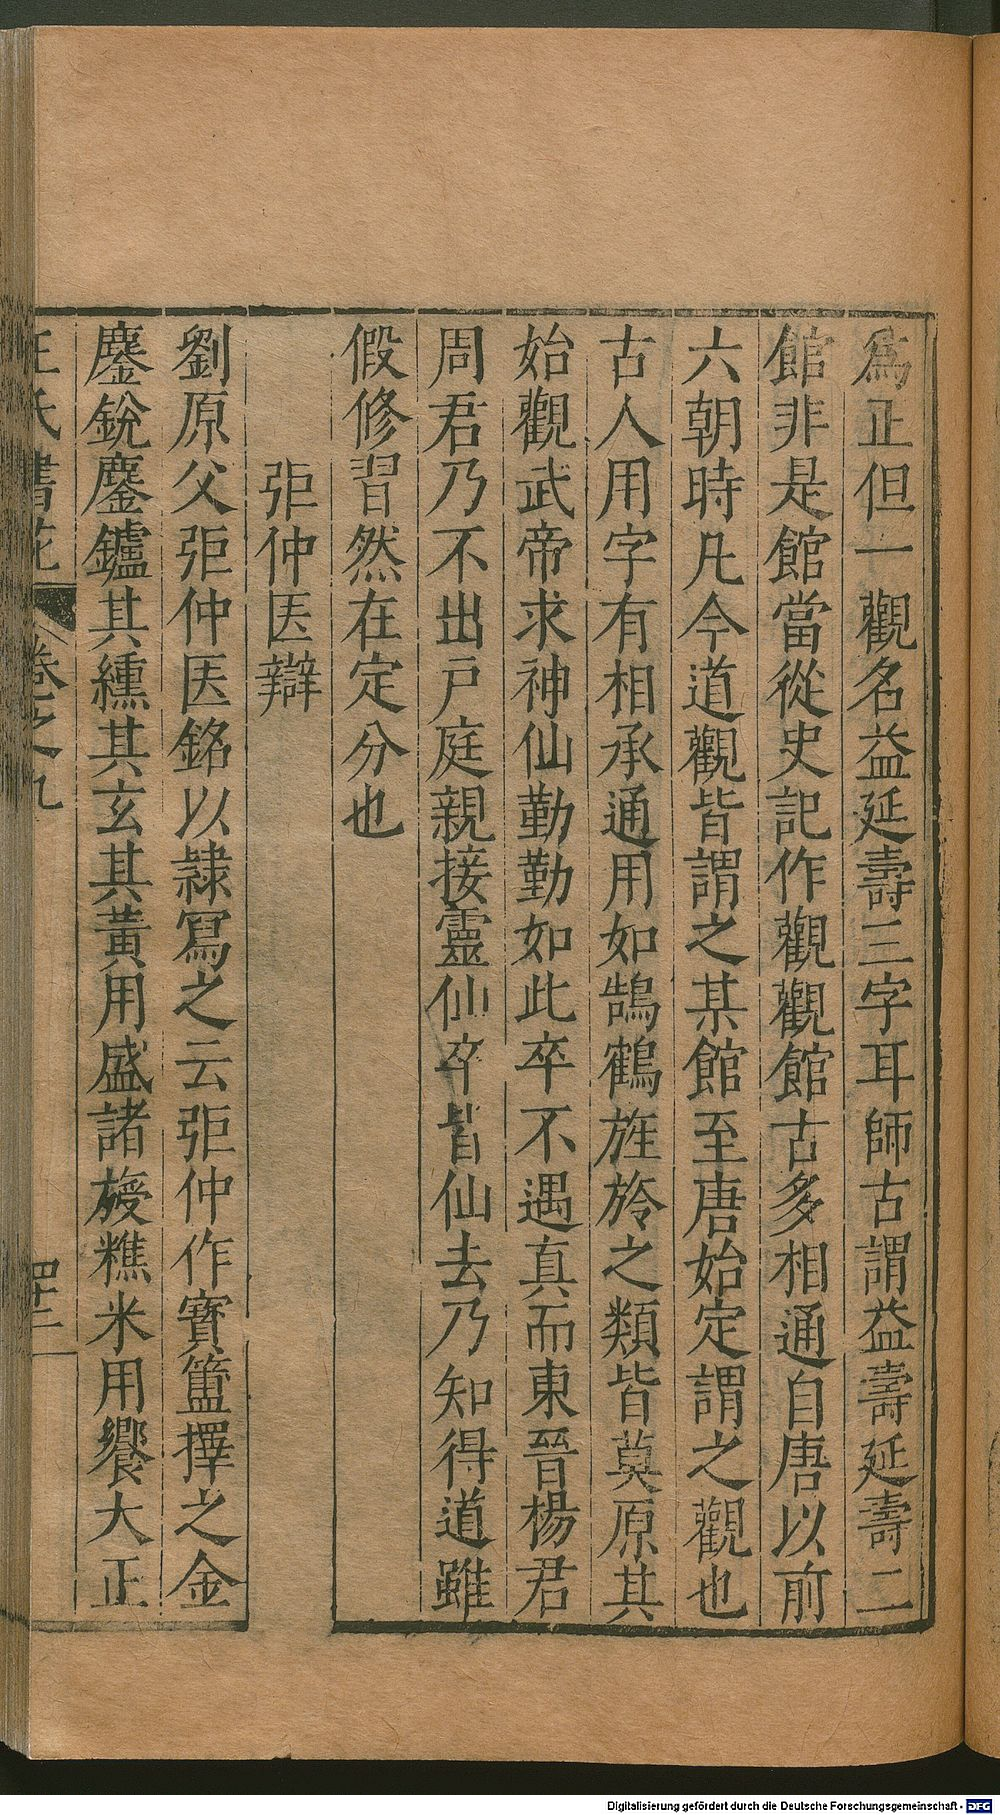 爲正但一觀名益延壽三字耳師古謂益壽延壽二
館非是館當從史記作觀觀館古多相通自唐以前
六朝時凡今道觀皆謂之某館至唐始定謂之觀也
古人用字有相承通用如鵠鶴旌旍之類皆莫原其
始觀武帝求神仙勤勤如此卒不遇真而東晉楊君
周君乃不出戸庭親接靈仙卒皆仙去乃知得道雖
假修習然在定分也
弡仲医辯
劉原父弡仲医銘以隷寫之云弡仲作寶簠擇之金
鏖銳鏖鑪其纁其玄其黃用盛諸糔米用饗大正
王氏書苑 卷之九 四十二
Digitalisierung gefördert durch die Deutsche Forschungsgemeinschaft - DFG